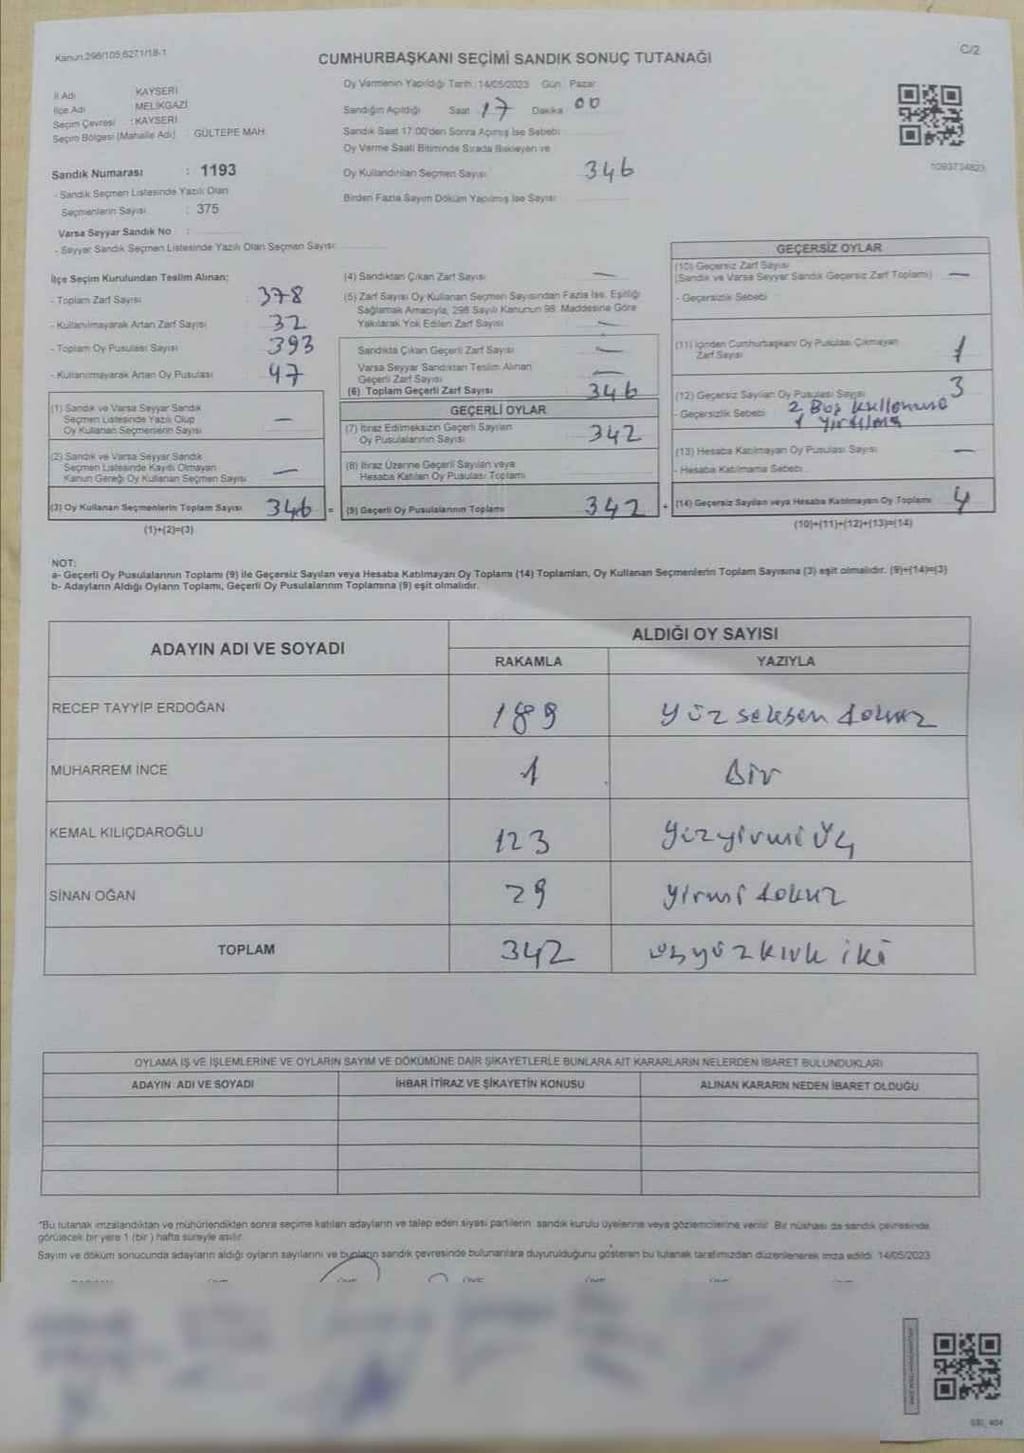 Kanun 298/105,6271/18-1
CUMHURBAŞKANI SEÇİMİ SANDIK SONUÇ TUTANAĞI
C/2
İl Adı KAYSERİ
İlçe Adı MELİKGAZİ
Seçim Çevresi : KAYSERİ
Seçim Bölgesi (Mahalle Adı) GÜLTEPE MAH.
Oy Vermenin Yapıldığı Tarih: 14/05/2023 Gün: Pazar
Sandığın Açıldığı Saat 17 Dakika 00
Sandık Saat 17:00'den Sonra Açılmış İse Sebebi
Oy Verme Saati Bitiminde Sırada Bekleyen ve
Oy Kullandırılan Seçmen Sayısı 346
Birden Fazla Sayım Döküm Yapılmış İse Sayısı
1093734823
Sandık Numarası : 1193
- Sandık Seçmen Listesinde Yazılı Olan
Seçmenlerin Sayısı : 375
Varsa Seyyar Sandık No :
- Seyyar Sandık Seçmen Listesinde Yazılı Olan Seçmen Sayısı:
İlçe Seçim Kurulundan Teslim Alınan:
- Toplam Zarf Sayısı 378
- Kullanılmayarak Artan Zarf Sayısı 32
- Toplam Oy Pusulası Sayısı 393
- Kullanılmayarak Artan Oy Pusulası 47
(1) Sandık ve Varsa Seyyar Sandık
Seçmen Listesinde Yazılı Olup
Oy Kullanan Seçmenlerin Sayısı —
(2) Sandık ve Varsa Seyyar Sandık
Seçmen Listesinde Kayıtlı Olmayan
Kanun Gereği Oy Kullanan Seçmen Sayısı —
(3) Oy Kullanan Seçmenlerin Toplam Sayısı 346 =
(1)+(2)=(3)
(4) Sandıktan Çıkan Zarf Sayısı —
(5) Zarf Sayısı Oy Kullanan Seçmen Sayısından Fazla İse, Eşitliği
Sağlamak Amacıyla, 298 Sayılı Kanunun 98. Maddesine Göre
Yakılarak Yok Edilen Zarf Sayısı —
Sandıkta Çıkan Geçerli Zarf Sayısı —
Varsa Seyyar Sandıktan Teslim Alınan
Geçerli Zarf Sayısı —
(6) Toplam Geçerli Zarf Sayısı 346
GEÇERLİ OYLAR
(7) İtiraz Edilmeksizin Geçerli Sayılan
Oy Pusulalarının Sayısı 342
(8) İtiraz Üzerine Geçerli Sayılan veya
Hesaba Katılan Oy Pusulası Toplamı
(9) Geçerli Oy Pusulalarının Toplamı 342 +
GEÇERSİZ OYLAR
(10) Geçersiz Zarf Sayısı
(Sandık ve Varsa Seyyar Sandık Geçersiz Zarf Toplamı) —
- Geçersizlik Sebebi
(11) İçinden Cumhurbaşkanı Oy Pusulası Çıkmayan
Zarf Sayısı 1
(12) Geçersiz Sayılan Oy Pusulası Sayısı 3
- Geçersizlik Sebebi 2 Boş kullanma
1 yırtılma
(13) Hesaba Katılmayan Oy Pusulası Sayısı —
- Hesaba Katılmama Sebebi
(14) Geçersiz Sayılan veya Hesaba Katılmayan Oy Toplamı 4
(10)+(11)+(12)+(13)=(14)
NOT:
a- Geçerli Oy Pusulalarının Toplamı (9) ile Geçersiz Sayılan veya Hesaba Katılmayan Oy Toplamı (14) Toplamları, Oy Kullanan Seçmenlerin Toplam Sayısına (3) eşit olmalıdır. (9)+(14)=(3)
b- Adayların Aldığı Oyların Toplamı, Geçerli Oy Pusulalarının Toplamına (9) eşit olmalıdır.
ADAYIN ADI VE SOYADI ALDIĞI OY SAYISI
RAKAMLA YAZIYLA
RECEP TAYYİP ERDOĞAN 189 yüz seksen dokuz
MUHARREM İNCE 1 Bir
KEMAL KILIÇDAROĞLU 123 yüzyirmi üç
SİNAN OĞAN 29 yirmi dokuz
TOPLAM 342 üçyüzkırk iki
OYLAMA İŞ VE İŞLEMLERİNE VE OYLARIN SAYIM VE DÖKÜMÜNE DAİR ŞİKAYETLERLE BUNLARA AİT KARARLARIN NELERDEN İBARET BULUNDUKLARI
ADAYIN ADI VE SOYADI İHBAR İTİRAZ VE ŞİKAYETİN KONUSU ALINAN KARARIN NEDEN İBARET OLDUĞU
"Bu tutanak imzalandıktan ve mühürlendikten sonra seçime katılan adayların ve talep eden siyasi partilerin sandık kurulu üyelerine veya gözlemcilerine verilir. Bir nüshası da sandık çevresinde
görülecek bir yere 1 (bir) hafta süreyle asılır.
Sayım ve döküm sonucunda adayların aldığı oyların sayılarını ve bunların sandık çevresinde bulunanlara duyurulduğunu gösteren bu tutanak tarafımızdan düzenlenerek imza edildi. 14/05/2023